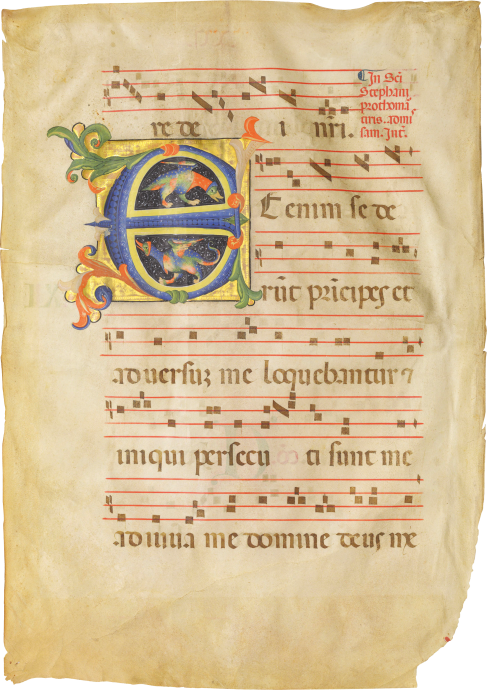 re de i nr̄i.
In Sc̄i
Stephani
prothoma
tiris. ad mi
sam. Intr̄.
Et enim se de
rūt prīcipes et
aduersuʒ me loquebantur ⁊
iniqui persecu ti sunt me
adiuua me domine deus me